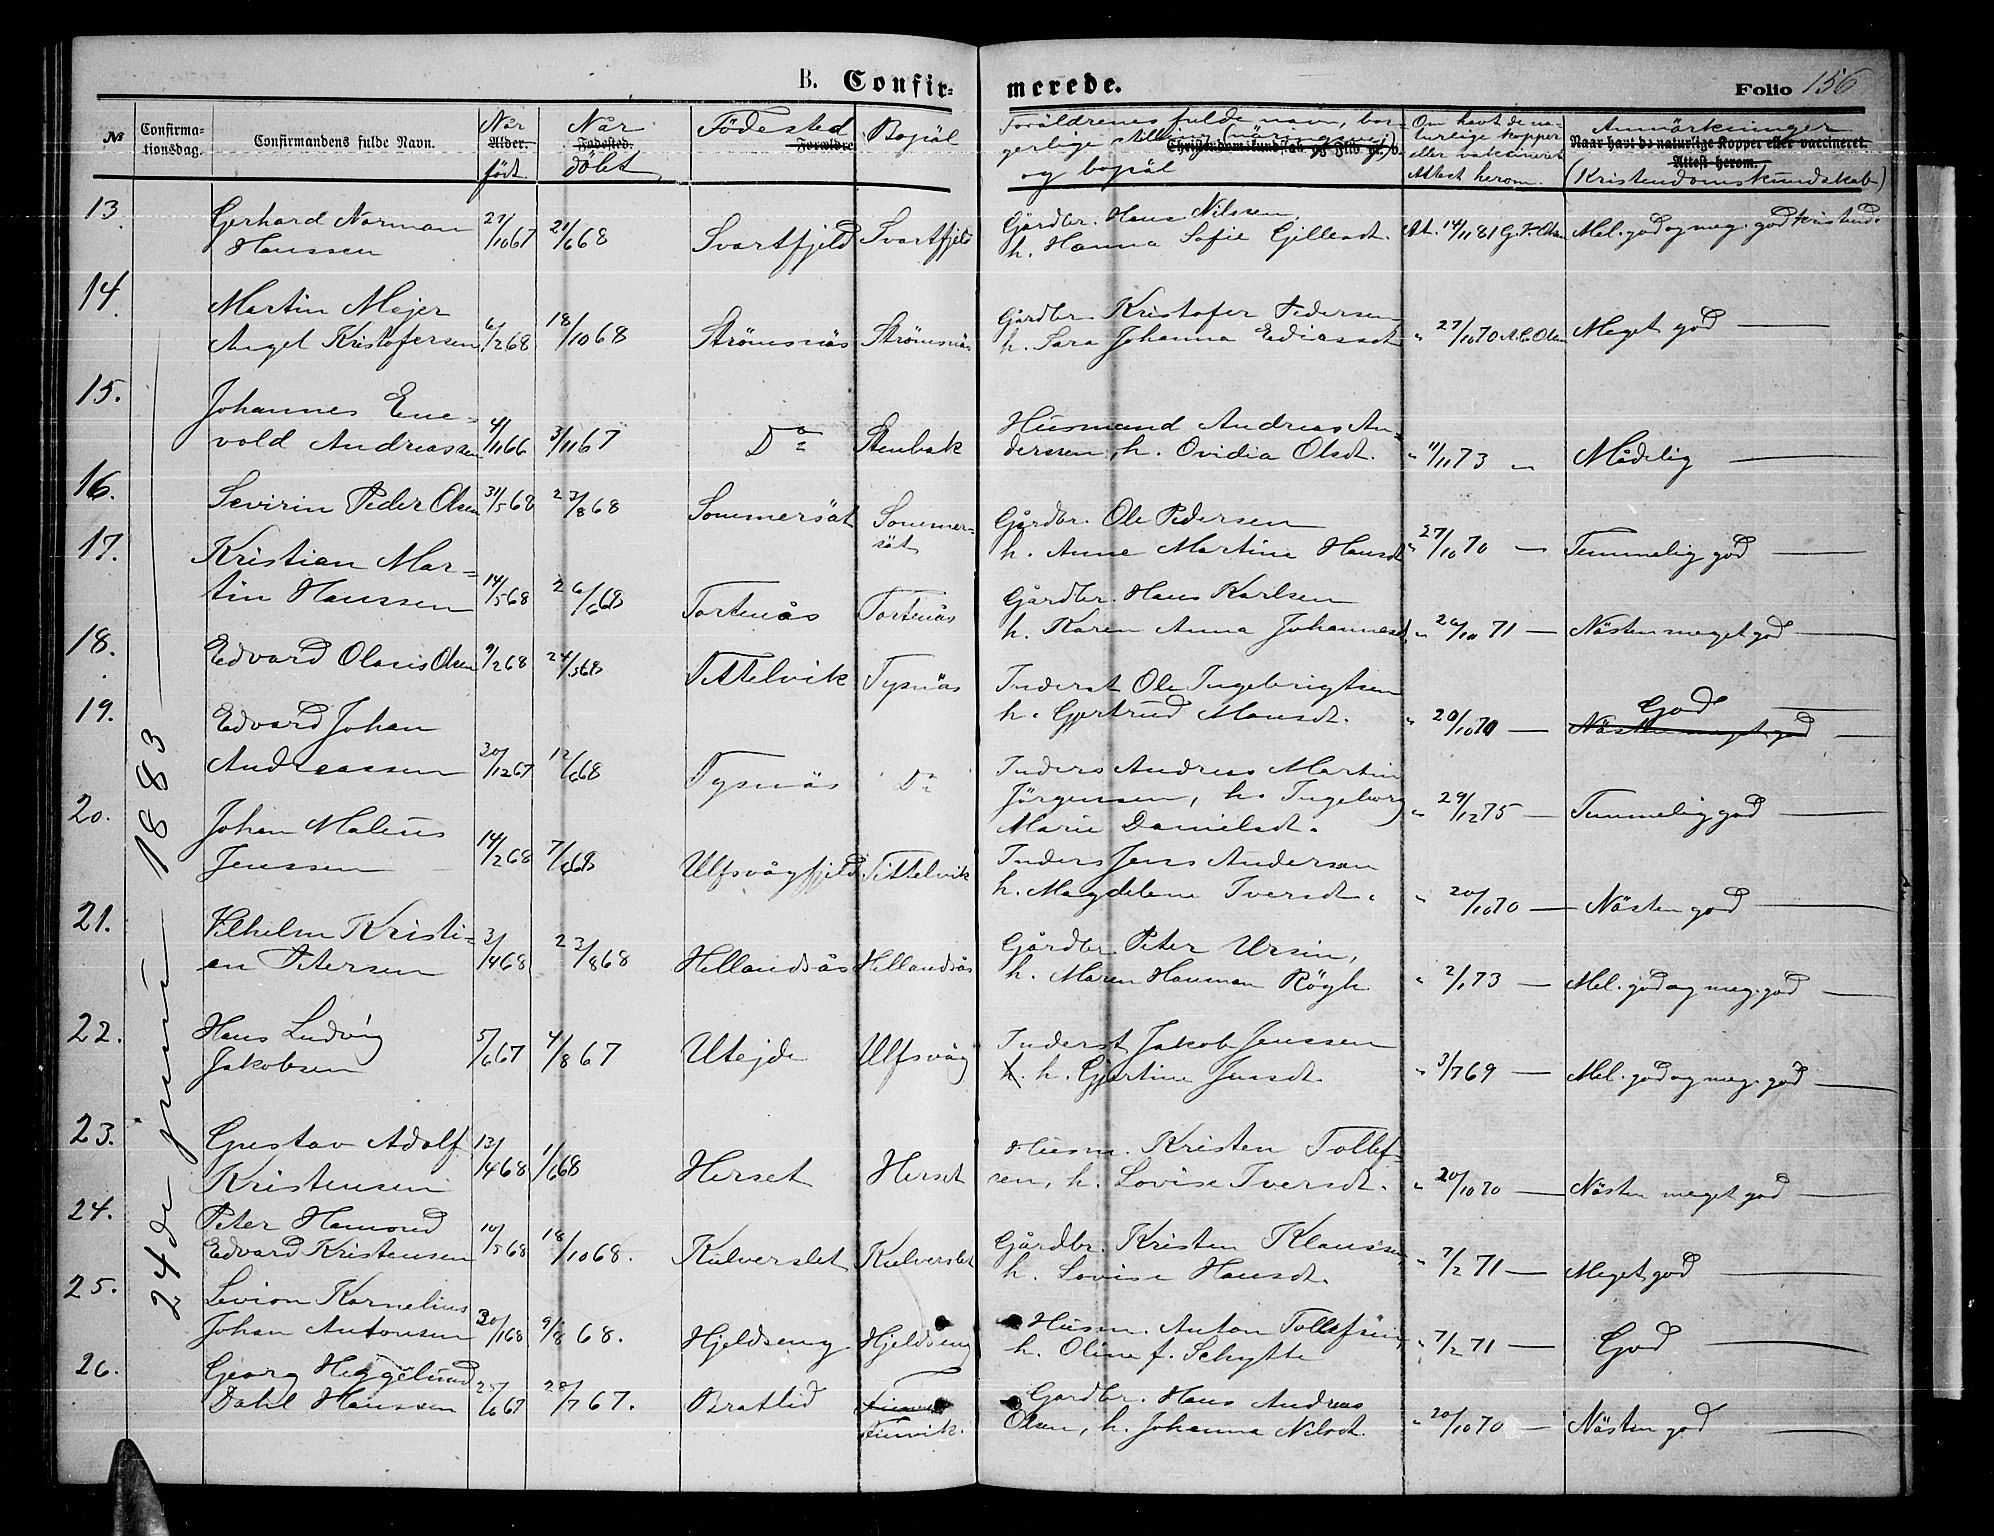 B. Confirmerede. Folio 156
№ Confirmationsdag. Confirmandens fulde Navn. Når Alder. født Når Fødested. döbt Födested Forældre Bopäl Foräldrenes fulde navn, borgerlige stilling (näringsvej) og bopäl Om havt de naturlige kopper eller vaksineret Attest herom. Anmärkninger Naar havt de naturlige Kopper eller vaccineret. Attest herom. (Kristendomskundskab)
24de juni 1883
13. Gerhard Norman 27/10 67 21/6 68 Svartfjeld Svartfjeld Gårdbr. Hans Nilssen, At. 14/11 81 Mel. god og meg. god kristend.
Hanssen h. Hanna Sofie Gilleadt.
14. Martin Mejer Gårdbr. Kristofer Pedersen
Angel Kristofersen 6/2 68 18/10 68 Strömsnäs Strömsnäs h. Sara Johanna Ediassdt " 27/10 70 A.C. Olsen Meget god
15. Johannes Ene- Husmand Andreas An-
vold Andreassen 4/11 66 3/11 67 Do Stenbak derssen, h. Ovidia Olsdt. " 11/11 73 " Mådelig
16. Sevirin Peder Olsen 31/5 68 23/8 68 Sommersät Sommer- Gårdbr. Ole Pedersen
sät h. Anne Martine Hansdt " 27/10 70 — Temmelig god
17. Kristian Mar- Gårdbr. Hans Karlsen
tin Hanssen 14/5 68 26/6 68 Tortenäs Tortenäs h. Karen Anna Johannesdt. " 20/10 71 — Nästen meget god
18. Edvard Olaus Olsen 9/2 68 24/5 68 Tittelvik Tysnäs Inderst Ole Ingebrigtsen God
h. Gjertrud Mansdt. " 20/10 70 — Nästen meget god
19. Edvard Johan Inders Andreas Martin
Andreassen 30/12 67 12/6 68 Tysnäs Do Jörgenssen, h. Ingeborg " 29/12 75 — Temmelig god
Marie Danielsdt.
20. Johan Maleus Inders Jens Andersen
Jenssen 14/2 68 7/6 68 Ulfsvågfjeld Tittelvik h. Magdelene Iversdt. " 20/10 70 — Nästen god
21. Vilhelm Kristi- Gårdbr. Peter Ursin,
an Petersen 3/4 68 23/8 68 Hellandsås Hellandsås h. Maren Hauman Rögh. " 2/1 73 — Mel. god og meg. god
22. Hans Ludvig Inderst Jakob Jenssen
Jakobsen 5/6 67 4/8 67 Utejde Ulfsvåg h. h. Gjertine Jensdt. " 3/7 69 — Mel. god og meg. god
23. Gustav Adolf Husm. Kristen Tollef-
Kristensen 13/4 68 1/6 68 Herset Herset sen, h. Lovise Iversdt. " 20/10 70 — Nästen meget god
24. Peter Hamond Gårdbr. Kristen Klaussen
Edvard Kristensen 10/5 68 18/10 68. Kulverslet Kulverslet h. Lovise Hansdt. " 7/2 71 — Meget god
25. Levion Kornelius Husm. Anton Tollefsen,
Johan Antonsen 30/1 68 9/8 68. Hjeldseng Hjeldseng h. Oline f. Schytte " 7/2 71 — God
26. Georg Heggelund Gårdbr. Hans Andreas
Dahl Hanssen 25/6 67 28/7 67. Bratlid Finvik. Olsen, h. Johanna Nilsdt. " 20/10 70 — Nästen god